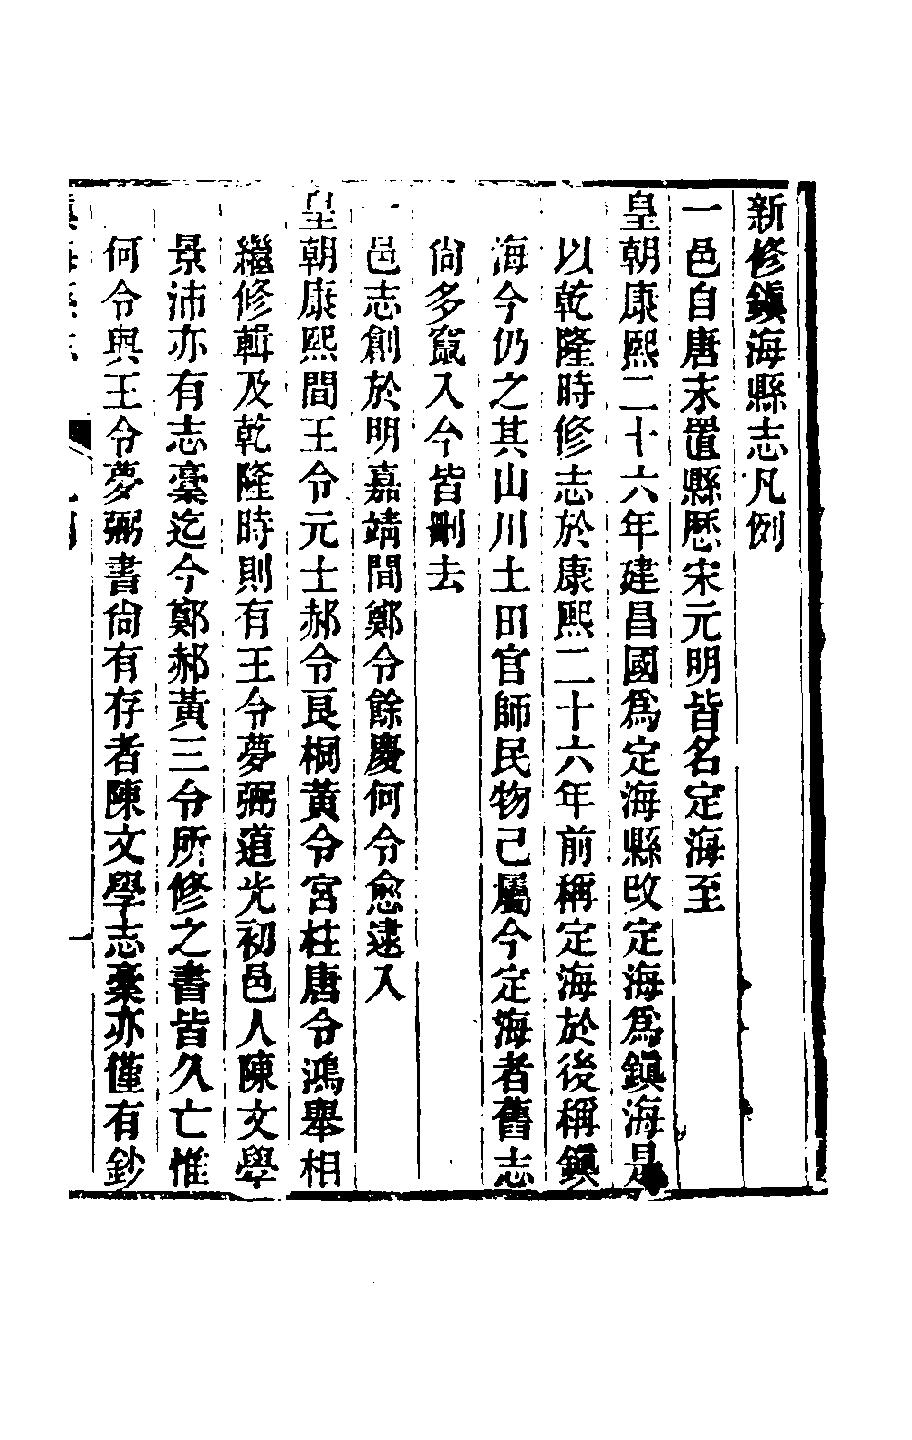 新修鎭海縣志凡例
一邑自唐末置縣歷宋元明皆名定海至
皇朝康熙二十六年建昌國爲定海縣改定海爲鎭海是
以乾隆時修志於康熙二十六年前稱定海於後稱鎭
海今仍之其山川土田官師民物已屬今定海者舊志
尙多竄入今皆刪去
一邑志創於明嘉靖間鄭令餘慶何令愈逮入
皇朝康熙間王令元士郝令良桐黃令宮柱唐令鴻舉相
繼修輯及乾隆時則有王令夢弼道光初邑人陳文學
景沛亦有志稾迄今鄭郝黃三令所修之書皆久亡惟
何令與王令夢弼書尙有存者陳文學志稾亦僅有鈔